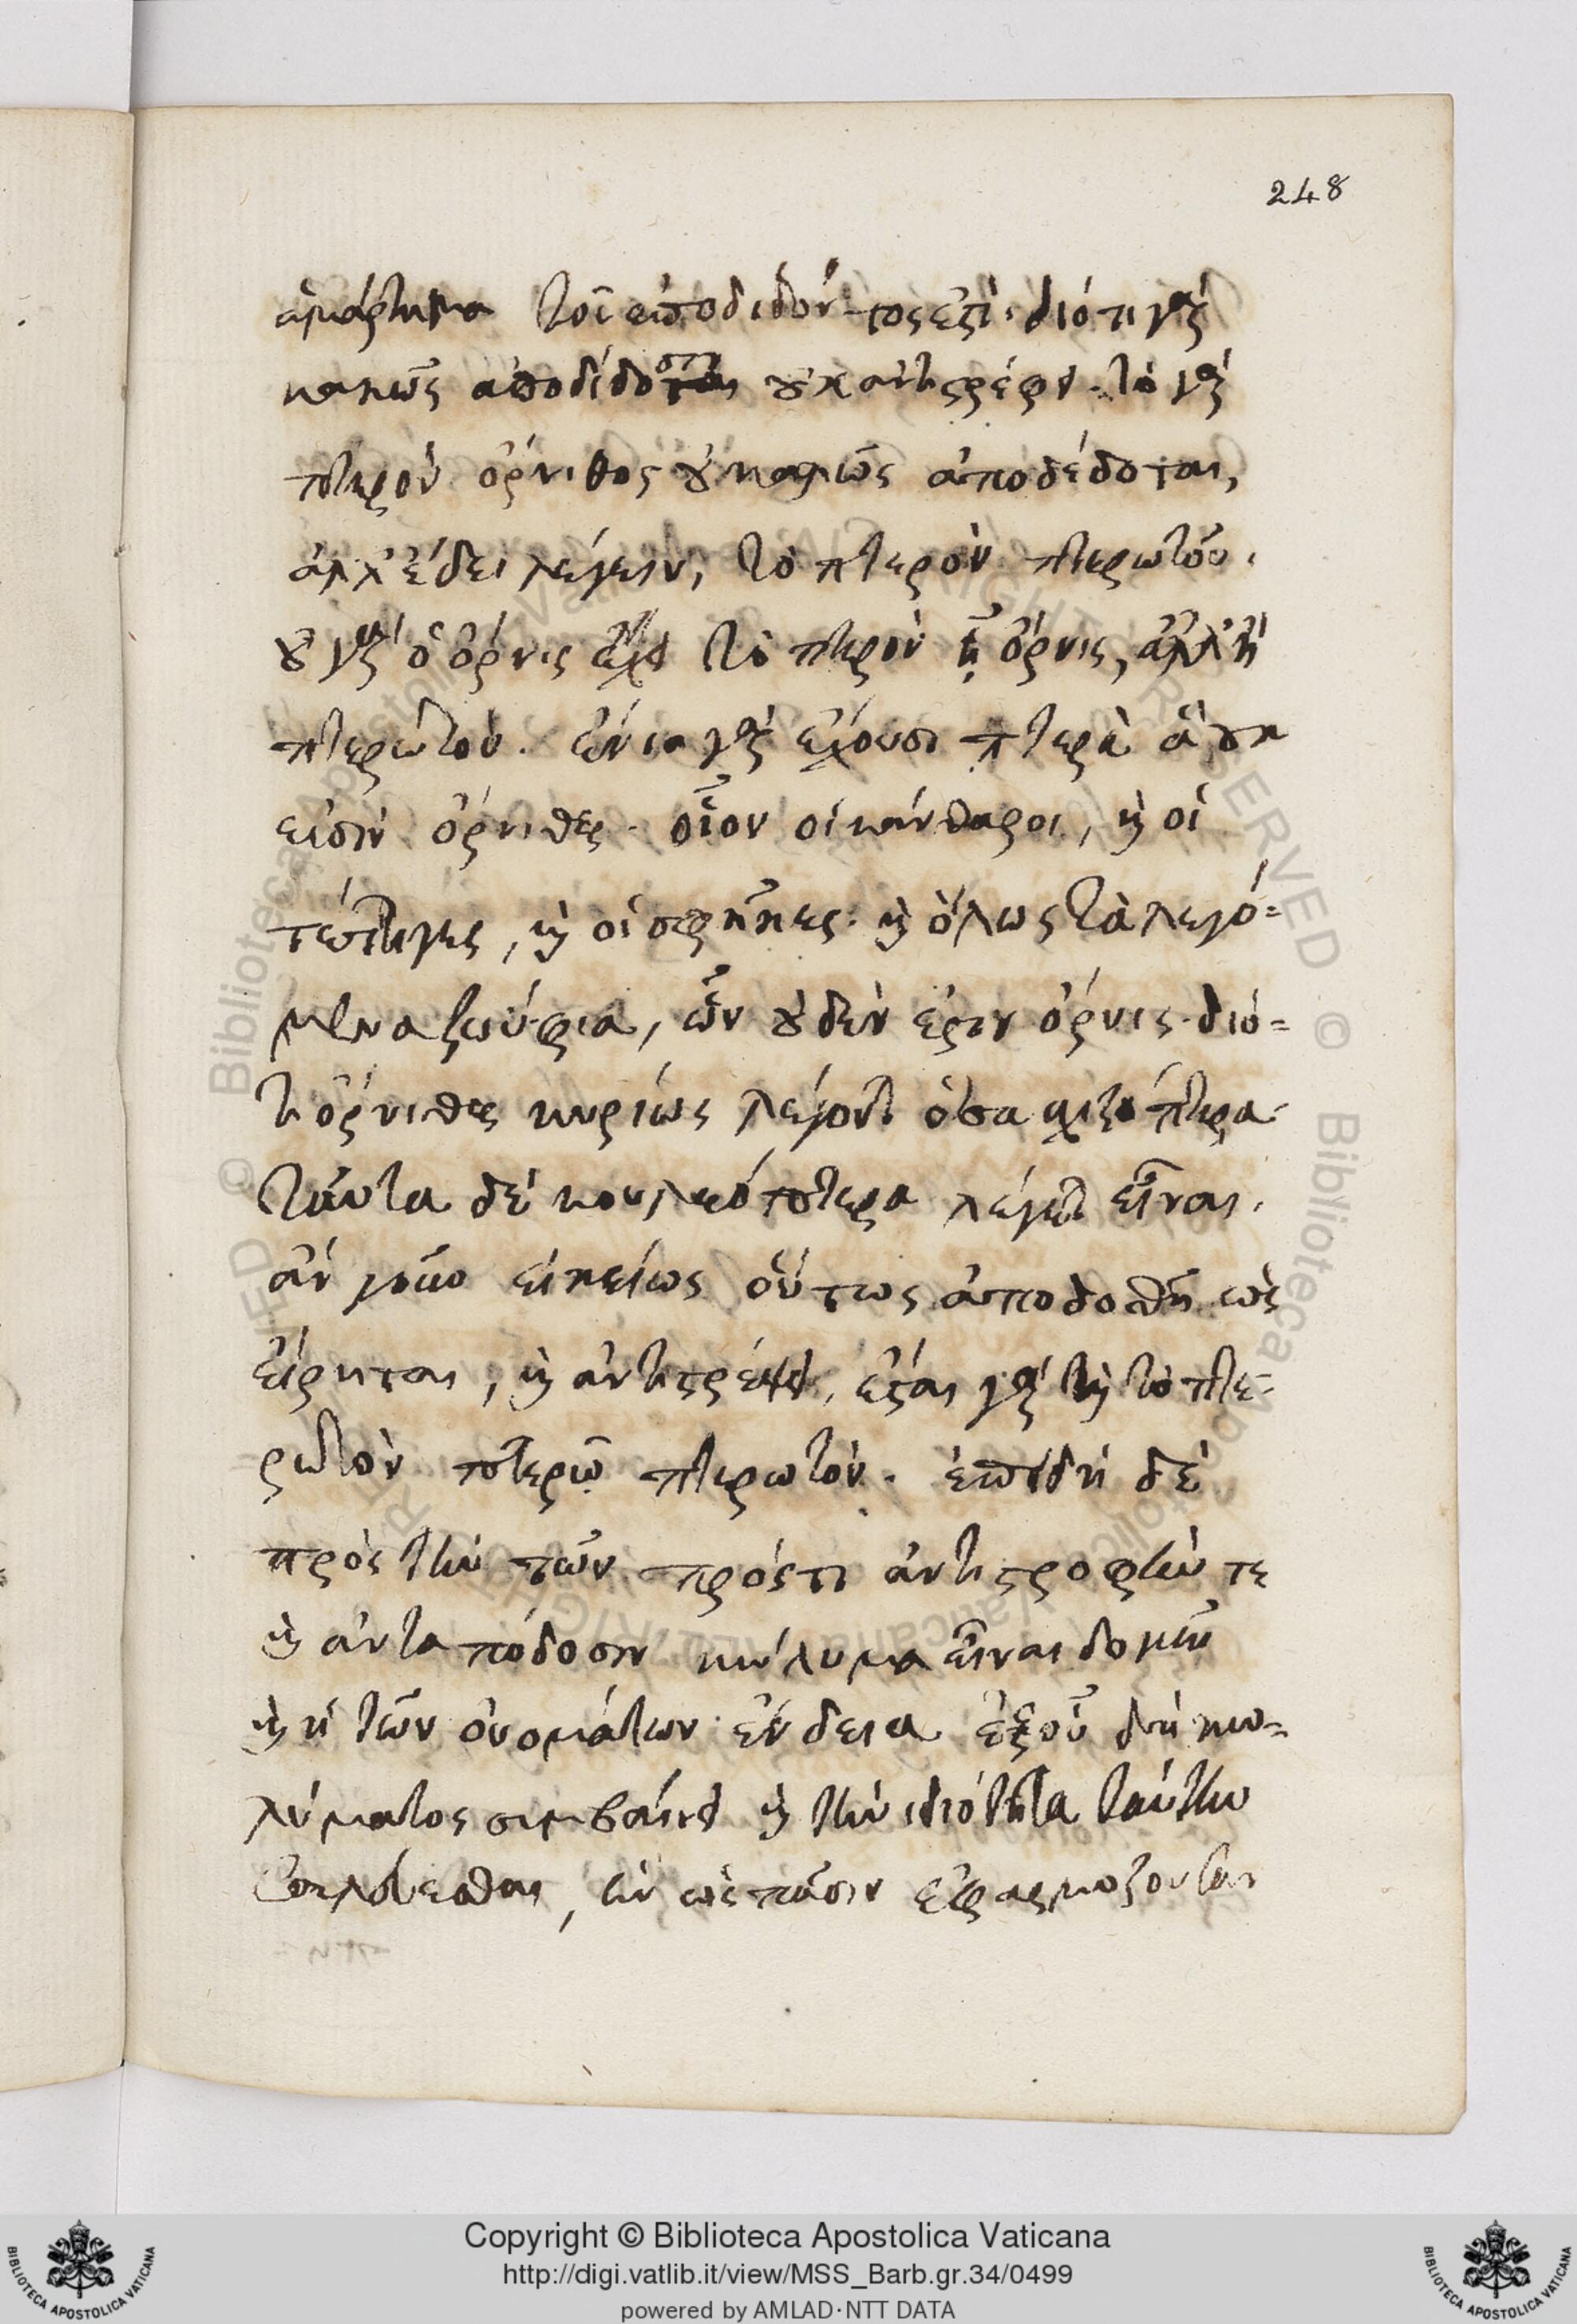 248
ἁμάρτημα τοῦ ἀποδιδόντος ἐστὶ· διότι γὰρ
κακῶς ἀποδίδοται οὐκ ἀντιστρέφει. τὸ γὰρ
πτερὸν ὄρνιθος οὐ καλῶς ἀποδέδοται,
ἀλλ' ἔδει λέγειν, τὸ πτερὸν πτερωτοῦ.
οὐ γὰρ ὁ ὄρνις ἔχει τὸ πτερὸν ᾗ ὄρνις, ἀλλ' ᾗ
πτερωτόν. ἔνια γὰρ ἔχουσι πτερὰ ἃ οὐκ
εἰσὶν ὄρνιθες· οἷον οἱ κάνθαροι, καὶ οἱ
τέττιγες, καὶ οἱ σφῆκες· καὶ ὅλως τὰ λεγό=
μενα ζωύφια, ὧν οὐδέν ἐστιν ὄρνις· διό=
τι ὄρνιθες κυρίως λέγονται ὅσα σχιζόπτερα·
ταῦτα δὲ κουλεόπτερα λέγεται εἶναι.
ἂν μόνο οἰκείως οὕτως ἀποδοθῇ ὡς
εἴρηται, καὶ ἀντιστρέψει, ἔσται γὰρ καὶ τὸ πτε=
ρωτὸν πτερῷ πτερωτόν. ἐπειδὴ δὲ
πρὸς τὴν τῶν πρόστι ἀντιστροφήν τε
καὶ ἀνταπόδοσιν κώλυμα εἶναι δοκεῖ
καὶ ἡ τῶν ὀνομάτων ἔνδεια ἐξ οὗ δὴ κω=
λύματος συμβαίνει καὶ τὴν ἰδιότητα ταύτην
ὡς πᾶσιν ἐφαρμόζουσαν
Copyright © Biblioteca Apostolica Vaticana
http://digi.vatlib.it/view/MSS_Barb.gr.34/0499
powered by AMLAD·NTT DATA